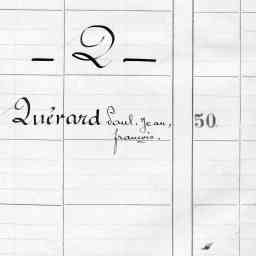 — Q —
Quérard Paul, Jean, 50
françois.